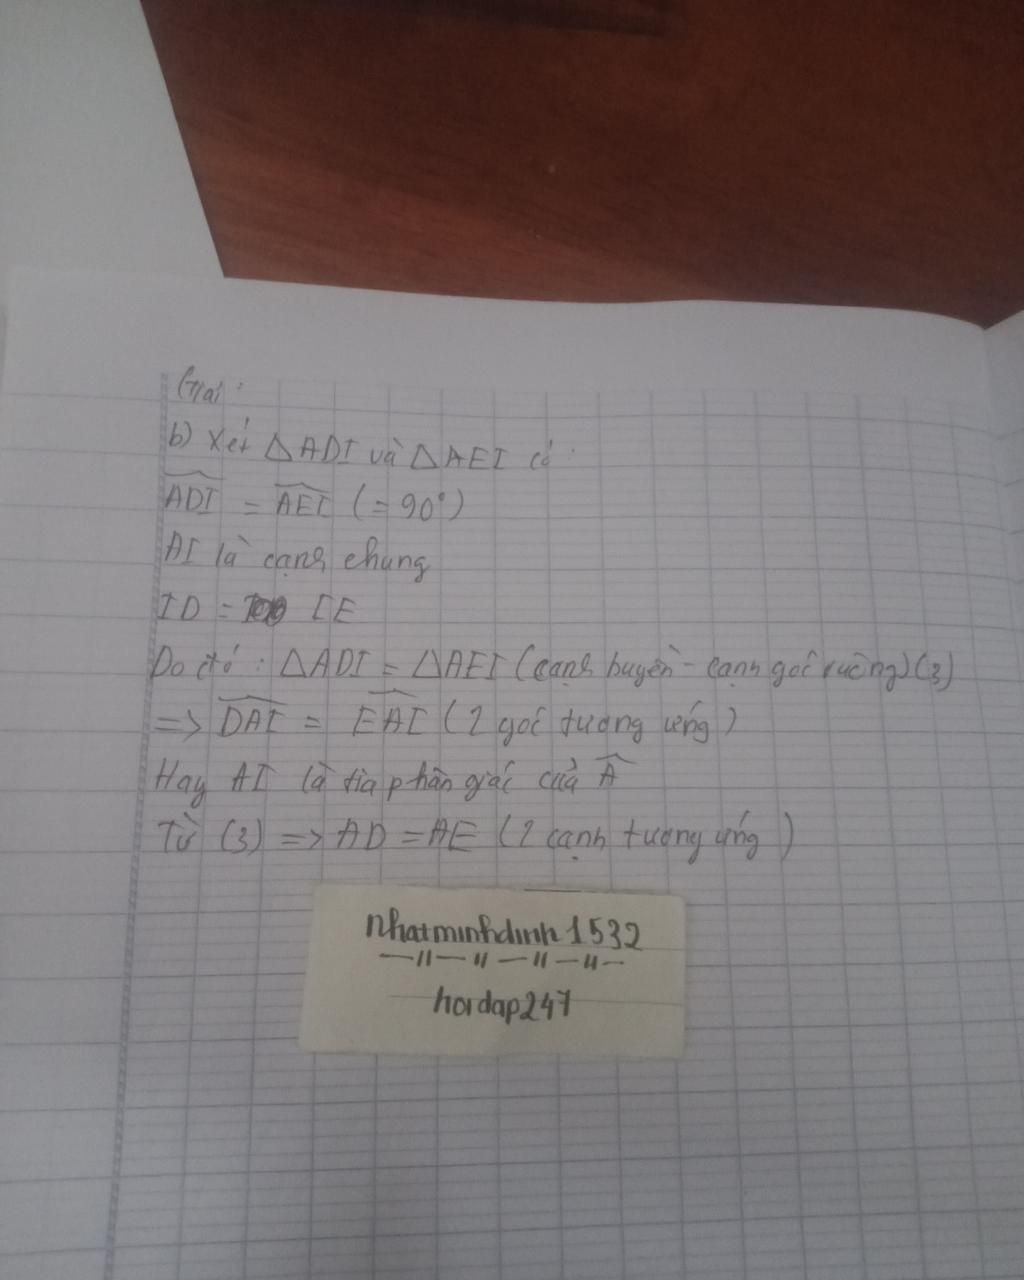 Giải:
b) Xét △ADI và △AEI có:
ADI = AEI (= 90°)
AI là cạnh chung
ID = IE
Do đó: △ADI = △AEI (cạnh huyền - cạnh góc vuông) (3)
=> DAI = EAI (2 góc tương ứng)
Hay AI là tia phân giác của A
Từ (3) => AD = AE (2 cạnh tương ứng)
nhatminhdinh1532
hoidap247